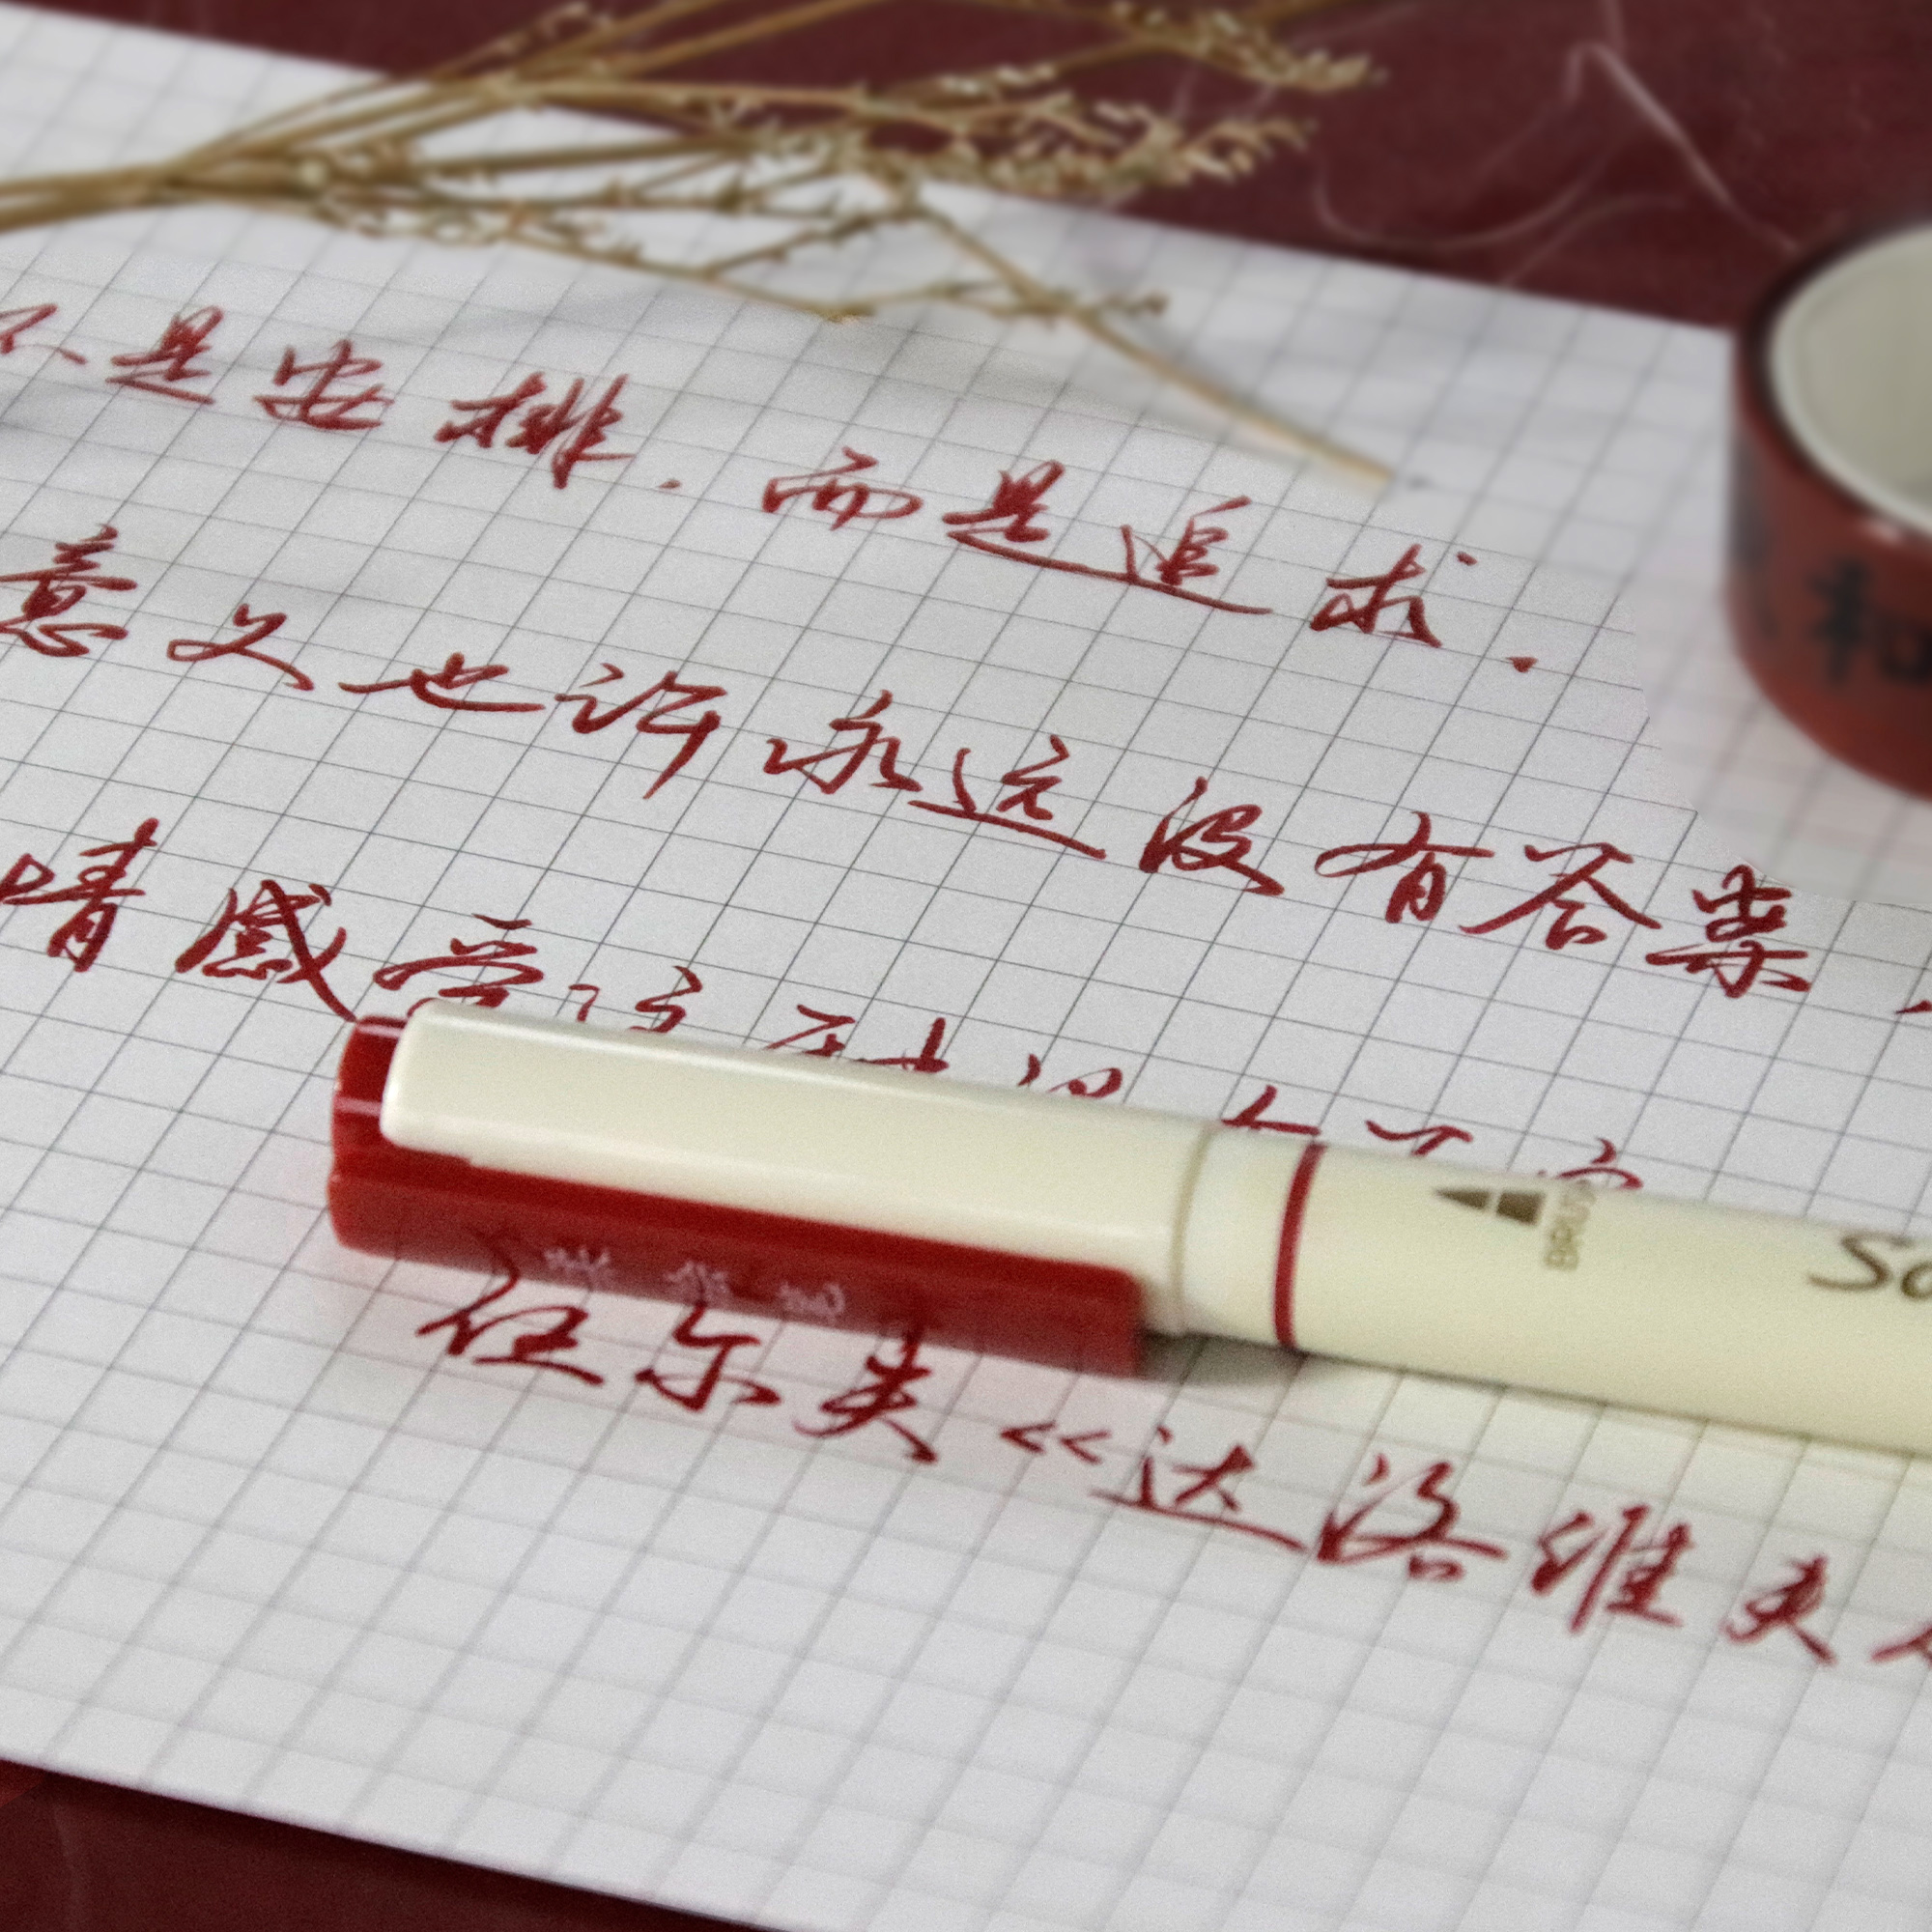 不是安排.而是追求.
意义也许永远没有答案
情感受这
伍尔芙《达洛维夫
和
BRU
So